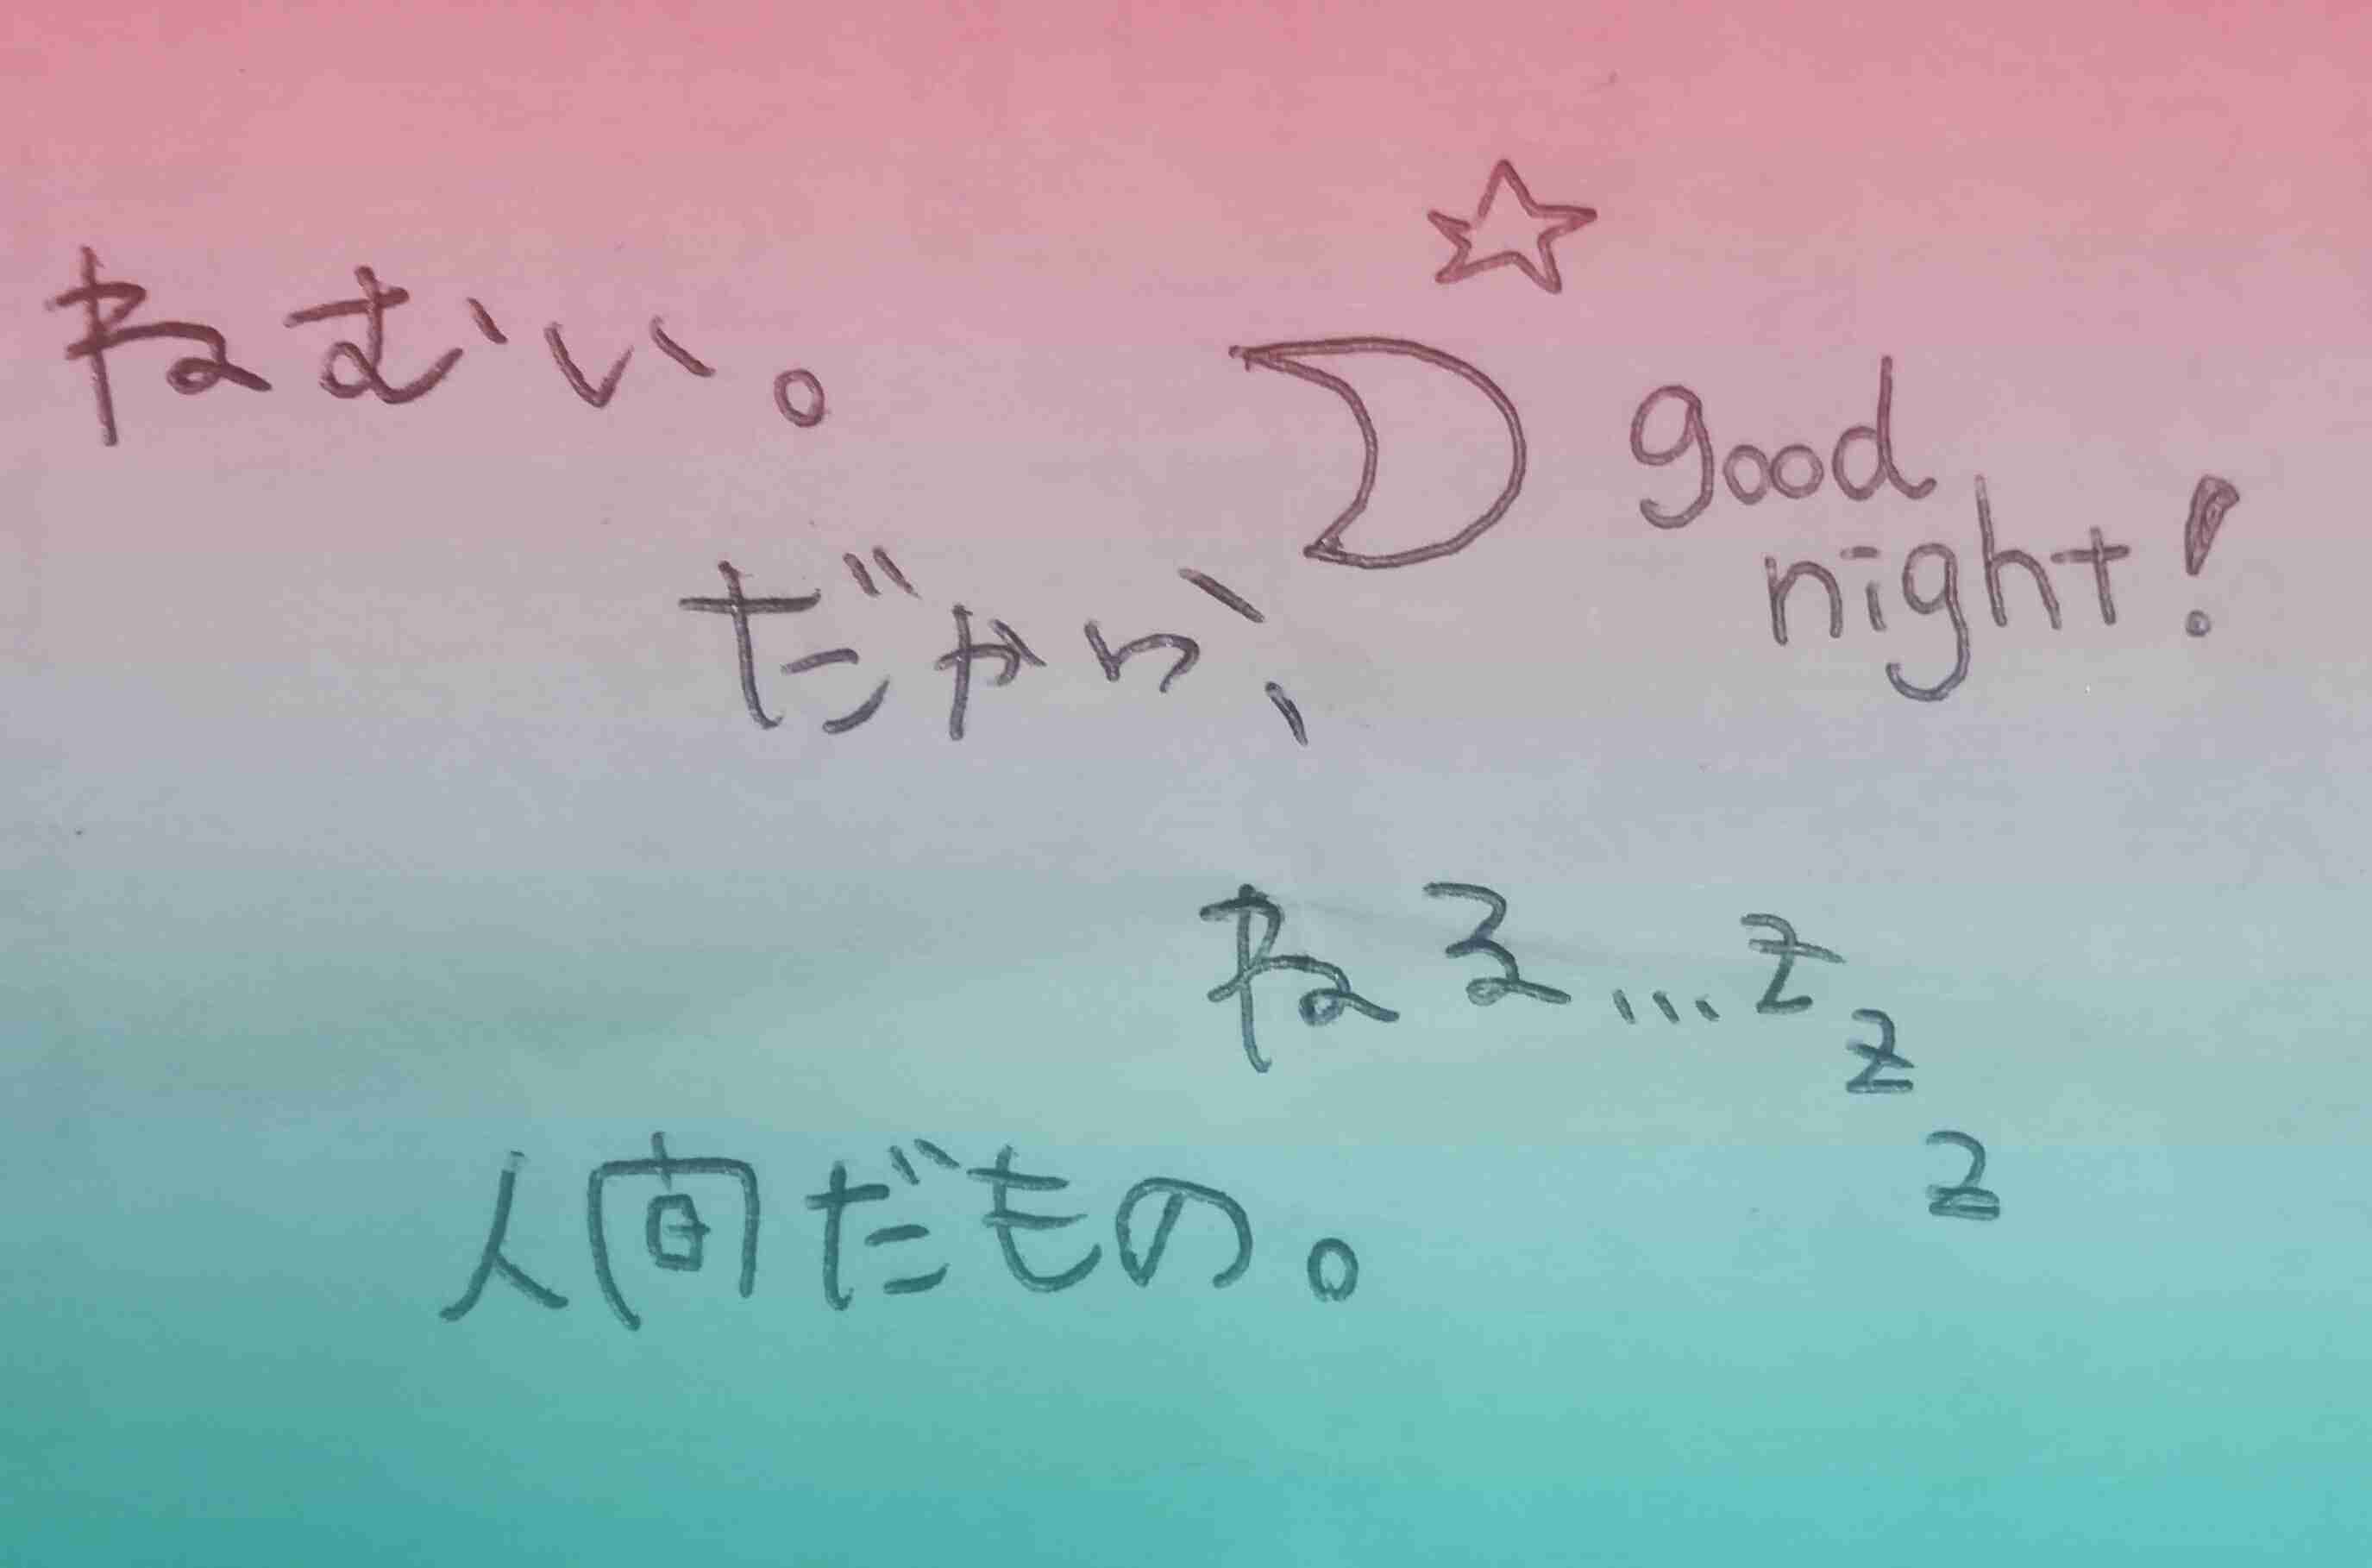 ねむい。
good
night!
だから、
ねる...zzz
人間だもの。